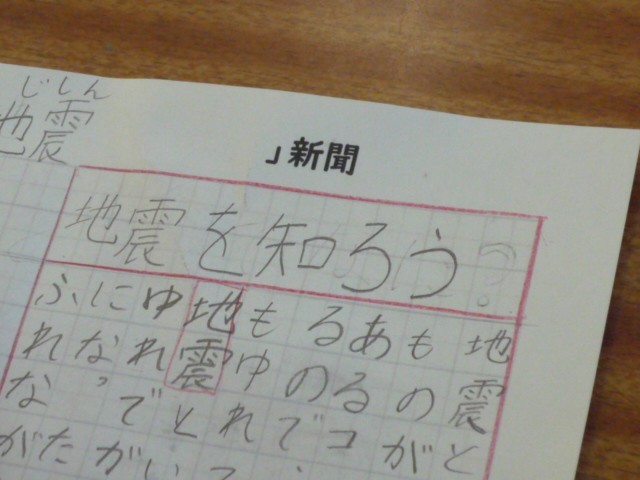 じしん
地震
」新聞
地震を知ろう
地震と
ものが
あるコ
るので、
もゆれて
地震とい
ゆれでが
にな
ふれなが